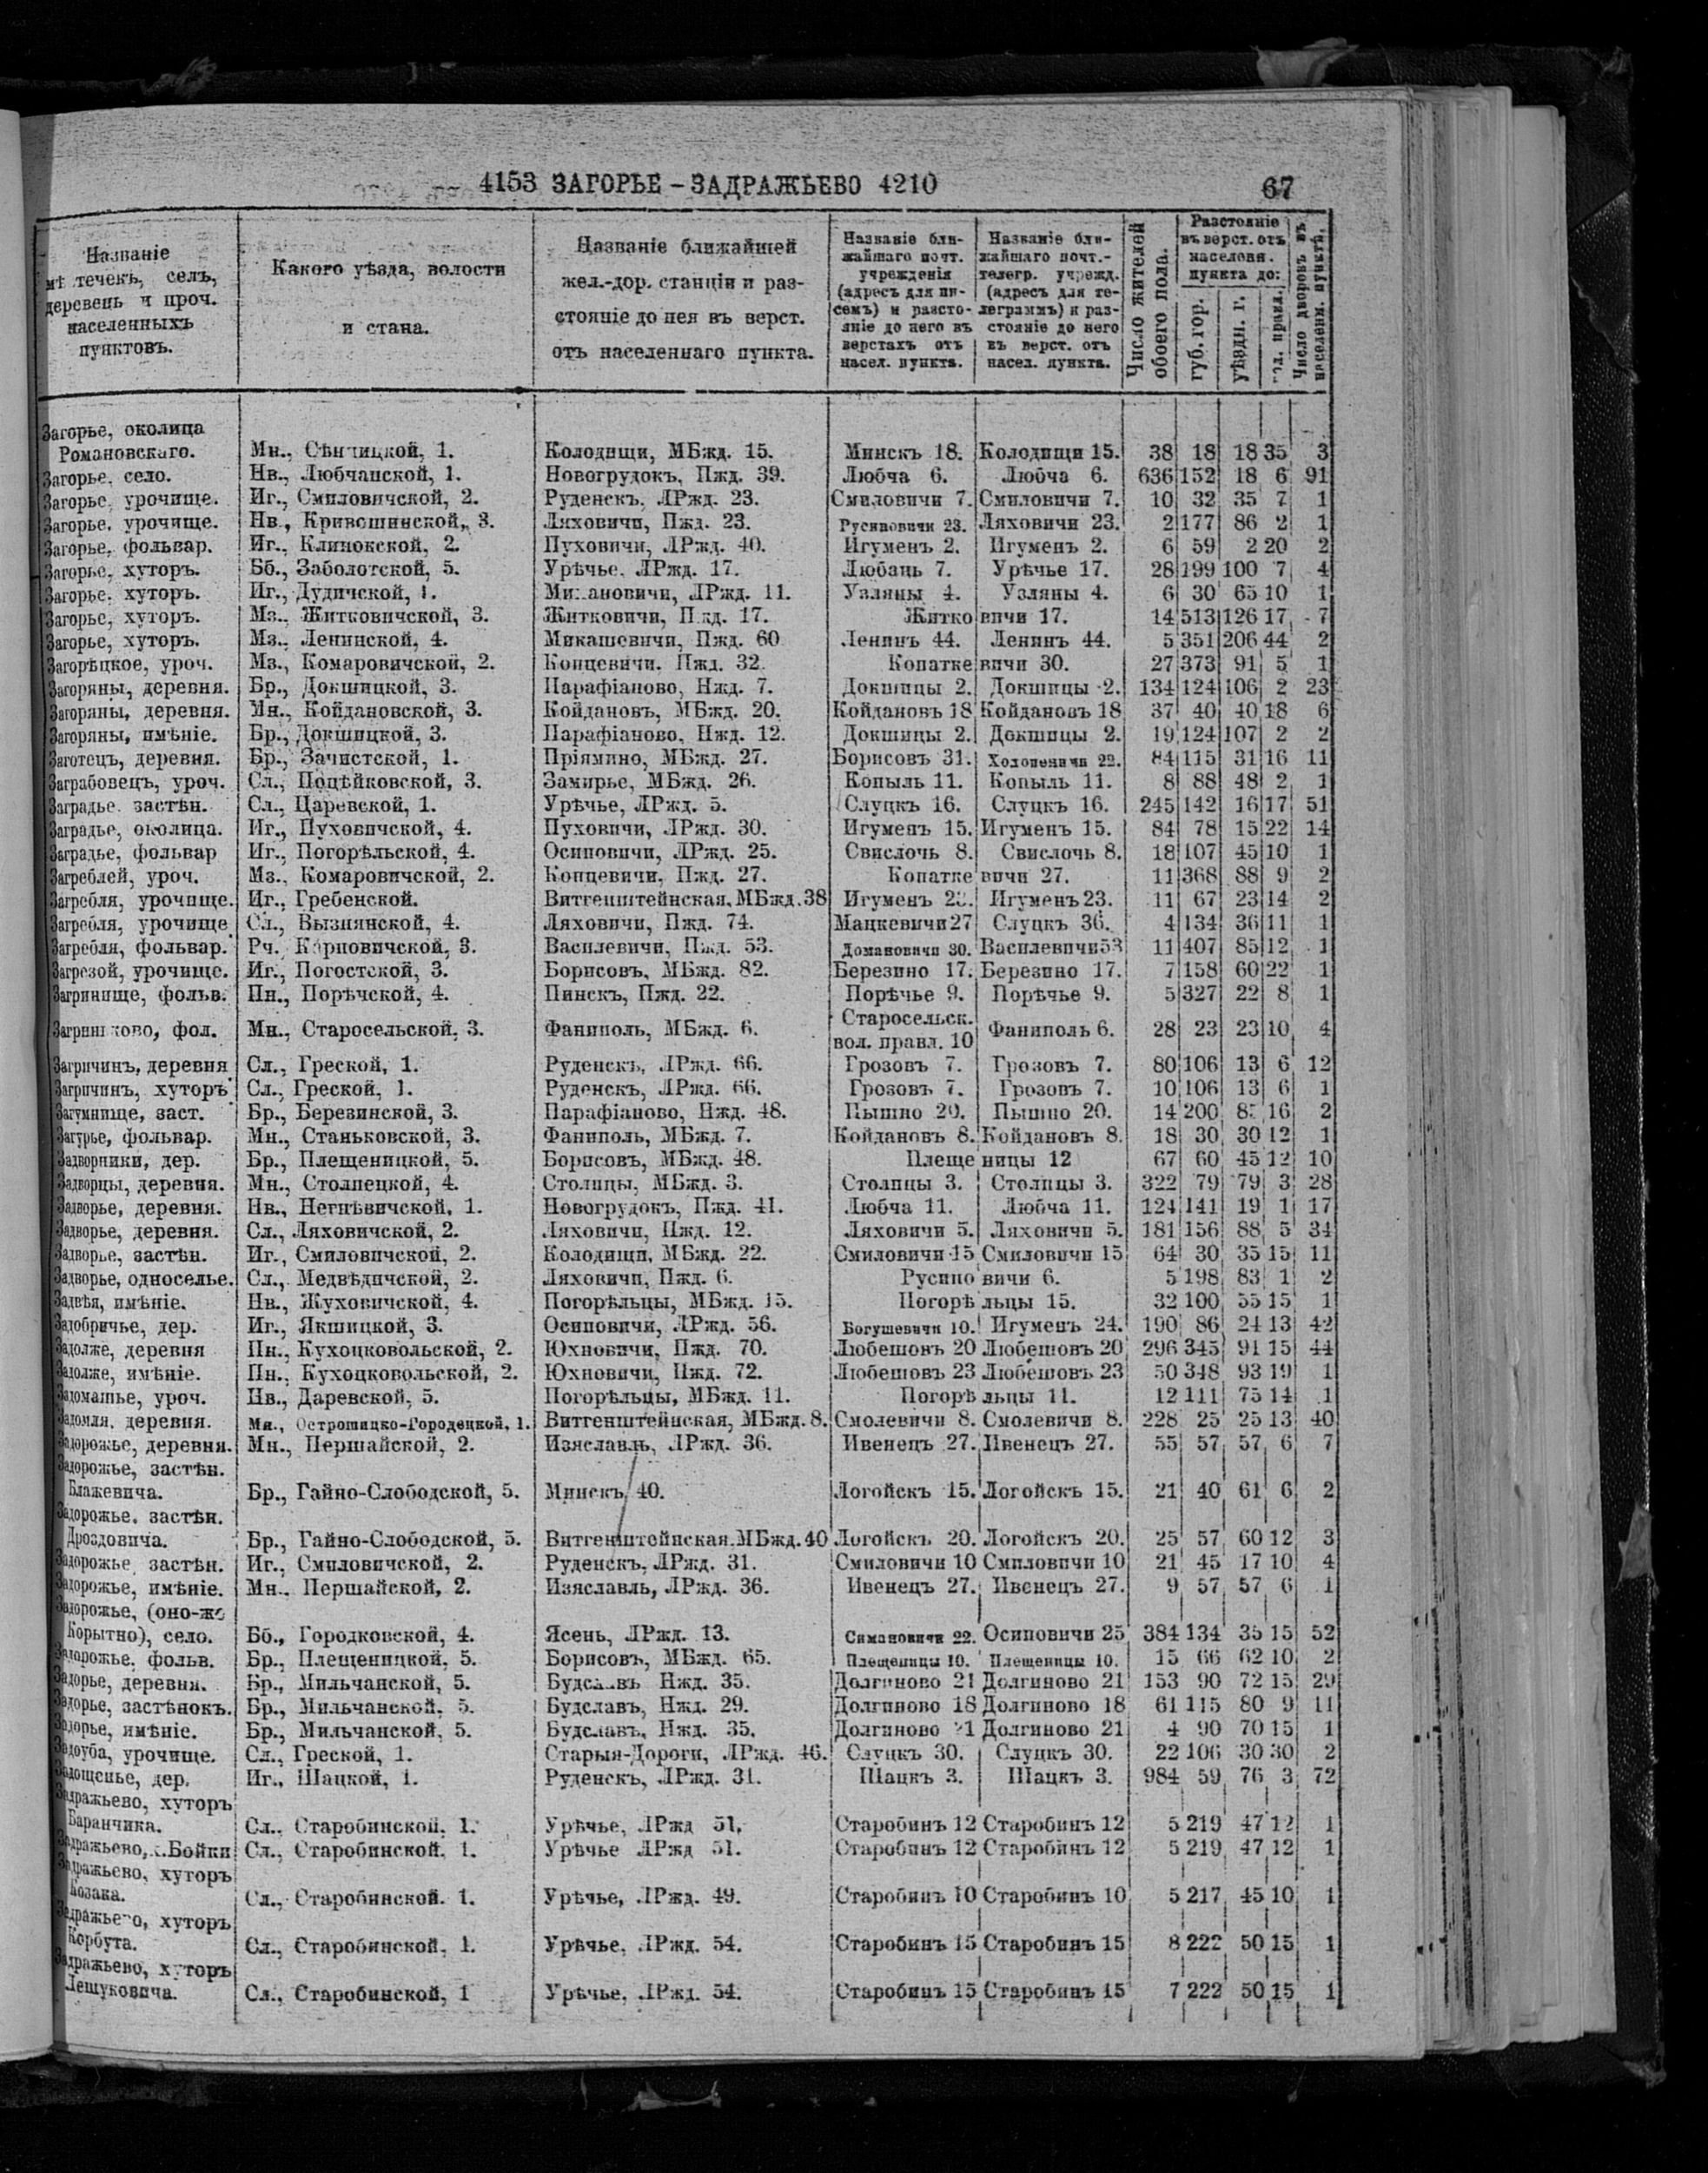 4153 ЗАГОРЬЕ – ЗАДРАЖЬЕВО 4210 67
Названіе мѣстечекъ, селъ, деревень и проч. населенныхъ пунктовъ. | Какого уѣзда, волости и стана. | Названіе ближайшей жел.-дор. станціи и разстояніе до нея въ верст. отъ населеннаго пункта. | Названіе ближайшаго почт. учрежденія (адресъ для писемъ) и разстояніе до него въ верстахъ отъ насел. пункта. | Названіе ближайшаго почт.-телегр. учрежд. (адресъ для телеграммъ) и разстояніе до него въ верст. отъ насел. пункта. | Число жителей обоего пола. | Разстояніе въ верст. отъ населенн. пункта до: | губ. гор. | уѣздн. г. | вол. правл. | Число дворовъ въ населенн. пунктѣ.
Загорье, околица
Романовскаго. Мн., Сѣнницкой, 1. Колодищи, МБжд. 15. Минскъ 18. Колодищи 15. 38 18 18 35 3
Загорье, село. Нв., Любчанской, 1. Новогрудокъ, Пжд. 39. Любча 6. Любча 6. 636 152 18 6 91
Загорье, урочище. Иг., Смиловичской, 2. Руденскъ, ЛРжд. 23. Смиловичи 7. Смиловичи 7. 10 32 35 7 1
Загорье, урочище. Нв., Кривошинской, 3. Ляховичи, Пжд. 23. Русиновичи 23. Ляховичи 23. 2 177 86 2 1
Загорье, фольвар. Иг., Клинокской, 2. Пуховичи, ЛРжд. 40. Игуменъ 2. Игуменъ 2. 6 59 2 20 2
Загорье, хуторъ. Бб., Заболотской, 5. Урѣчье, ЛРжд. 17. Любань 7. Урѣчье 17. 28 199 100 7 4
Загорье, хуторъ. Иг., Дудичской, 1. Михановичи, ЛРжд. 11. Узляны 4. Узляны 4. 6 30 65 10 1
Загорье, хуторъ. Мз., Житковичской, 3. Житковичи, Пжд. 17. Житковичи 17. 14 513 126 17 7
Загорье, хуторъ. Мз., Ленинской, 4. Микашевичи, Пжд. 60 Ленинъ 44. Ленинъ 44. 5 351 206 44 2
Загорѣцкое, уроч. Мз., Комаровичской, 2. Копцевичи, Пжд. 32. Копаткевичи 30. 27 373 91 5 1
Загоряны, деревня. Бр., Докшицкой, 3. Парафіаново, Нжд. 7. Докшицы 2. Докшицы 2. 134 124 106 2 23
Загоряны, деревня. Мн., Койдановской, 3. Койдановъ, МБжд. 20. Койдановъ 18 Койдановъ 18 37 40 40 18 6
Загоряны, имѣніе. Бр., Докшицкой, 3. Парафіаново, Нжд. 12. Докшицы 2. Докшицы 2. 19 124 107 2 2
Заготецъ, деревня. Бр., Зачистской, 1. Пріямино, МБжд. 27. Борисовъ 31. Холопеничи 22. 84 115 31 16 11
Заграбовецъ, уроч. Сл., Поцѣйковской, 3. Замирье, МБжд. 26. Копыль 11. Копыль 11. 8 88 48 2 1
Заградье, застѣн. Сл., Царевской, 1. Урѣчье, ЛРжд. 5. Слуцкъ 16. Слуцкъ 16. 245 142 16 17 51
Заградье, околица. Иг., Пуховичской, 4. Пуховичи, ЛРжд. 30. Игуменъ 15. Игуменъ 15. 84 78 15 22 14
Заградье, фольвар Иг., Погорѣльской, 4. Осиповичи, ЛРжд. 25. Свислочь 8. Свислочь 8. 18 107 45 10 1
Загреблей, уроч. Мз., Комаровичской, 2. Копцевичи, Пжд. 27. Копаткевичи 27. 11 368 88 9 2
Загребля, урочище. Иг., Гребенской. Витгенштейнская, МБжд. 38 Игуменъ Игуменъ 23. 11 67 23 14 2
Загребля, урочище Сл., Вызнянской, 4. Ляховичи, Пжд. 74. Мацкевичи 27 Слуцкъ 36. 4 134 36 11 1
Загребля, фольвар. Рч. Карповичской, 3. Василевичи, Пжд. 53. Домановичи 30. Василевичи 53 11 407 85 12 1
Загрезой, урочище. Иг., Погостской, 3. Борисовъ, МБжд. 82. Березино 17. Березино 17. 7 158 60 22 1
Загринище, фольв. Пн., Порѣчской, 4. Пинскъ, Пжд. 22. Порѣчье 9. Порѣчье 9. 5 327 22 8 1
Загриньково, фол. Мн., Старосельской, 3. Фаниполь, МБжд. 6. Старосельск. вол. правл. 10 Фаниполь 6. 28 23 23 10 4
Загричинъ, деревня Сл., Греской, 1. Руденскъ, ЛРжд. 66. Грозовъ 7. Грозовъ 7. 80 106 13 6 12
Загричинъ, хуторъ Сл., Греской, 1. Руденскъ, ЛРжд. 66. Грозовъ 7. Грозовъ 7. 10 106 13 6 1
Загумнище, заст. Бр., Березинской, 3. Парафіаново, Нжд. 48. Пышно 20. Пышно 20. 14 200 16 2
Загурье, фольвар. Мн., Станьковской, 3. Фаниполь, МБжд. 7. Койдановъ 8. Койдановъ 8. 18 30 30 12 1
Задворники, дер. Бр., Плещеницкой, 5. Борисовъ, МБжд. 48. Плещеницы 12 67 60 45 12 10
Задворцы, деревня. Мн., Столпецкой, 4. Столпцы, МБжд. 3. Столпцы 3. Столпцы 3. 322 79 79 3 28
Задворье, деревня. Нв., Негнѣвичской, 1. Новогрудокъ, Пжд. 41. Любча 11. Любча 11. 124 141 19 1 17
Задворье, деревня. Сл., Ляховичской, 2. Ляховичи, Пжд. 12. Ляховичи 5. Ляховичи 5. 181 156 88 5 34
Задворье, застѣн. Иг., Смиловичской, 2. Колодищи, МБжд. 22. Смиловичи 15 Смиловичи 15 64 30 35 15 11
Задворье, односелье. Сл., Медвѣдичской, 2. Ляховичи, Пжд. 6. Русиновичи 6. 5 198 83 1 2
Задвѣя, имѣніе. Нв., Жуховичской, 4. Погорѣльцы, МБжд. 15. Погорѣльцы 15. 32 100 55 15 1
Задобричье, дер. Иг., Якшицкой, 3. Осиповичи, ЛРжд. 56. Богушевичи 10. Игуменъ 24. 190 86 24 13 42
Задолже, деревня Пн., Кухоцковольской, 2. Юхновичи, Пжд. 70. Любешовъ 20 Любешовъ 20 296 345 91 15 44
Задолже, имѣніе. Пн., Кухоцковольской, 2. Юхновичи, Пжд. 72. Любешовъ 23 Любешовъ 23 50 348 93 19 1
Задомашье, уроч. Нв., Даревской, 5. Погорѣльцы, МБжд. 11. Погорѣльцы 11. 12 111 75 14 1
Задомля, деревня. Мн., Острошицко-Городецкой, 1. Витгенштейнская, МБжд. 8. Смолевичи 8. Смолевичи 8. 228 25 25 13 40
Задорожье, деревня. Мн., Першайской, 2. Изяславль, ЛРжд. 36. Ивенецъ 27. Ивенецъ 27. 55 57 57 6 7
Задорожье, застѣн.
Блажевича. Бр., Гайно-Слободской, 5. Минскъ 40. Логойскъ 15. Логойскъ 15. 21 40 61 6 2
Задорожье, застѣн.
Дроздовича. Бр., Гайно-Слободской, 5. Витгенштейнская, МБжд. 40 Логойскъ 20. Логойскъ 20. 25 57 60 12 3
Задорожье, застѣн. Иг., Смиловичской, 2. Руденскъ, ЛРжд. 31. Смиловичи 10 Смиловичи 10 21 45 17 10 4
Задорожье, имѣніе. Мн., Першайской, 2. Изяславль, ЛРжд. 36. Ивенецъ 27. Ивенецъ 27. 9 57 57 6 1
Задорожье, (оно-же
Корытно), село. Бб., Городковской, 4. Ясень, ЛРжд. 13. Симановичи 22. Осиповичи 25 384 134 35 15 52
Задорожье, фольв. Бр., Плещеницкой, 5. Борисовъ, МБжд. 65. Плещеницы 10. Плещеницы 10. 15 66 62 10 2
Задорье, деревня. Бр., Мильчанской, 5. Будславъ Нжд. 35. Долгиново 21 Долгиново 21 153 90 72 15 29
Задорье, застѣнокъ. Бр., Мильчанской, 5. Будславъ, Нжд. 29. Долгиново 18 Долгиново 18 61 115 80 9 11
Задорье, имѣніе. Бр., Мильчанской, 5. Будславъ, Нжд. 35. Долгиново 21 Долгиново 21 4 90 70 15 1
Задоуба, урочище. Сл., Греской, 1. Старыя-Дороги, ЛРжд. 46. Слуцкъ 30. Слуцкъ 30. 22 106 30 30 2
Задощенье, дер. Иг., Шацкой, 1. Руденскъ, ЛРжд. 31. Шацкъ 3. Шацкъ 3. 984 59 76 3 72
Задражьево, хуторъ
Баранчика. Сл., Старобинской, 1. Урѣчье, ЛРжд 51. Старобинъ 12 Старобинъ 12 5 219 47 12 1
Задражьево, х.Бойки Сл., Старобинской, 1. Урѣчье ЛРжд 51. Старобинъ 12 Старобинъ 12 5 219 47 12 1
Задражьево, хуторъ
Козака. Сл., Старобинской, 1. Урѣчье, ЛРжд. 49. Старобинъ 10 Старобинъ 10 5 217 45 10 1
Задражьево, хуторъ
Корбута. Сл., Старобинской, 1. Урѣчье, ЛРжд. 54. Старобинъ 15 Старобинъ 15 8 222 50 15 1
Задражьево, хуторъ
Лешуковича. Сл., Старобинской, 1 Урѣчье, ЛРжд. 54. Старобинъ 15 Старобинъ 15 7 222 50 15 1